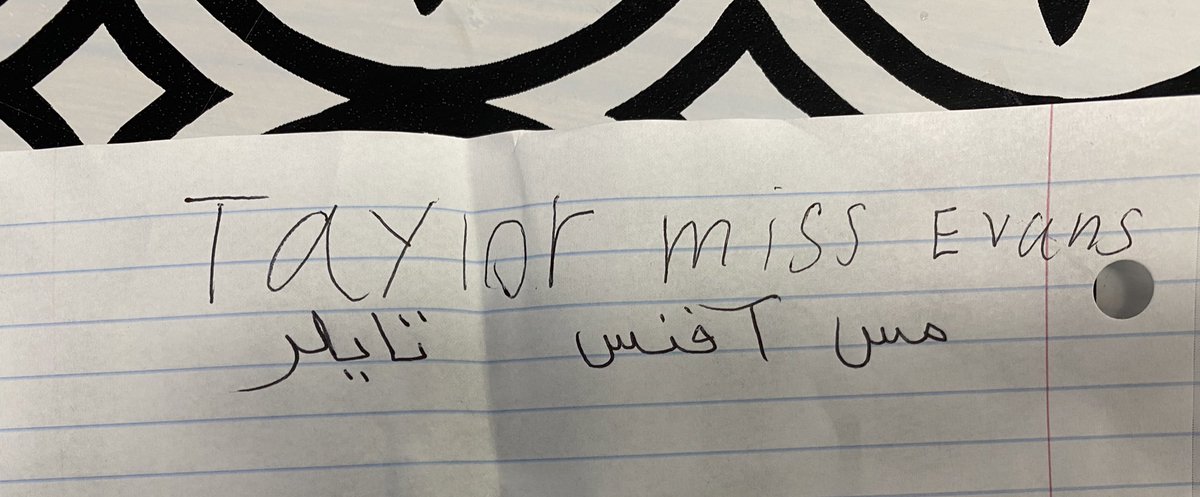 Taylor miss Evans
مس آفنس تايلر